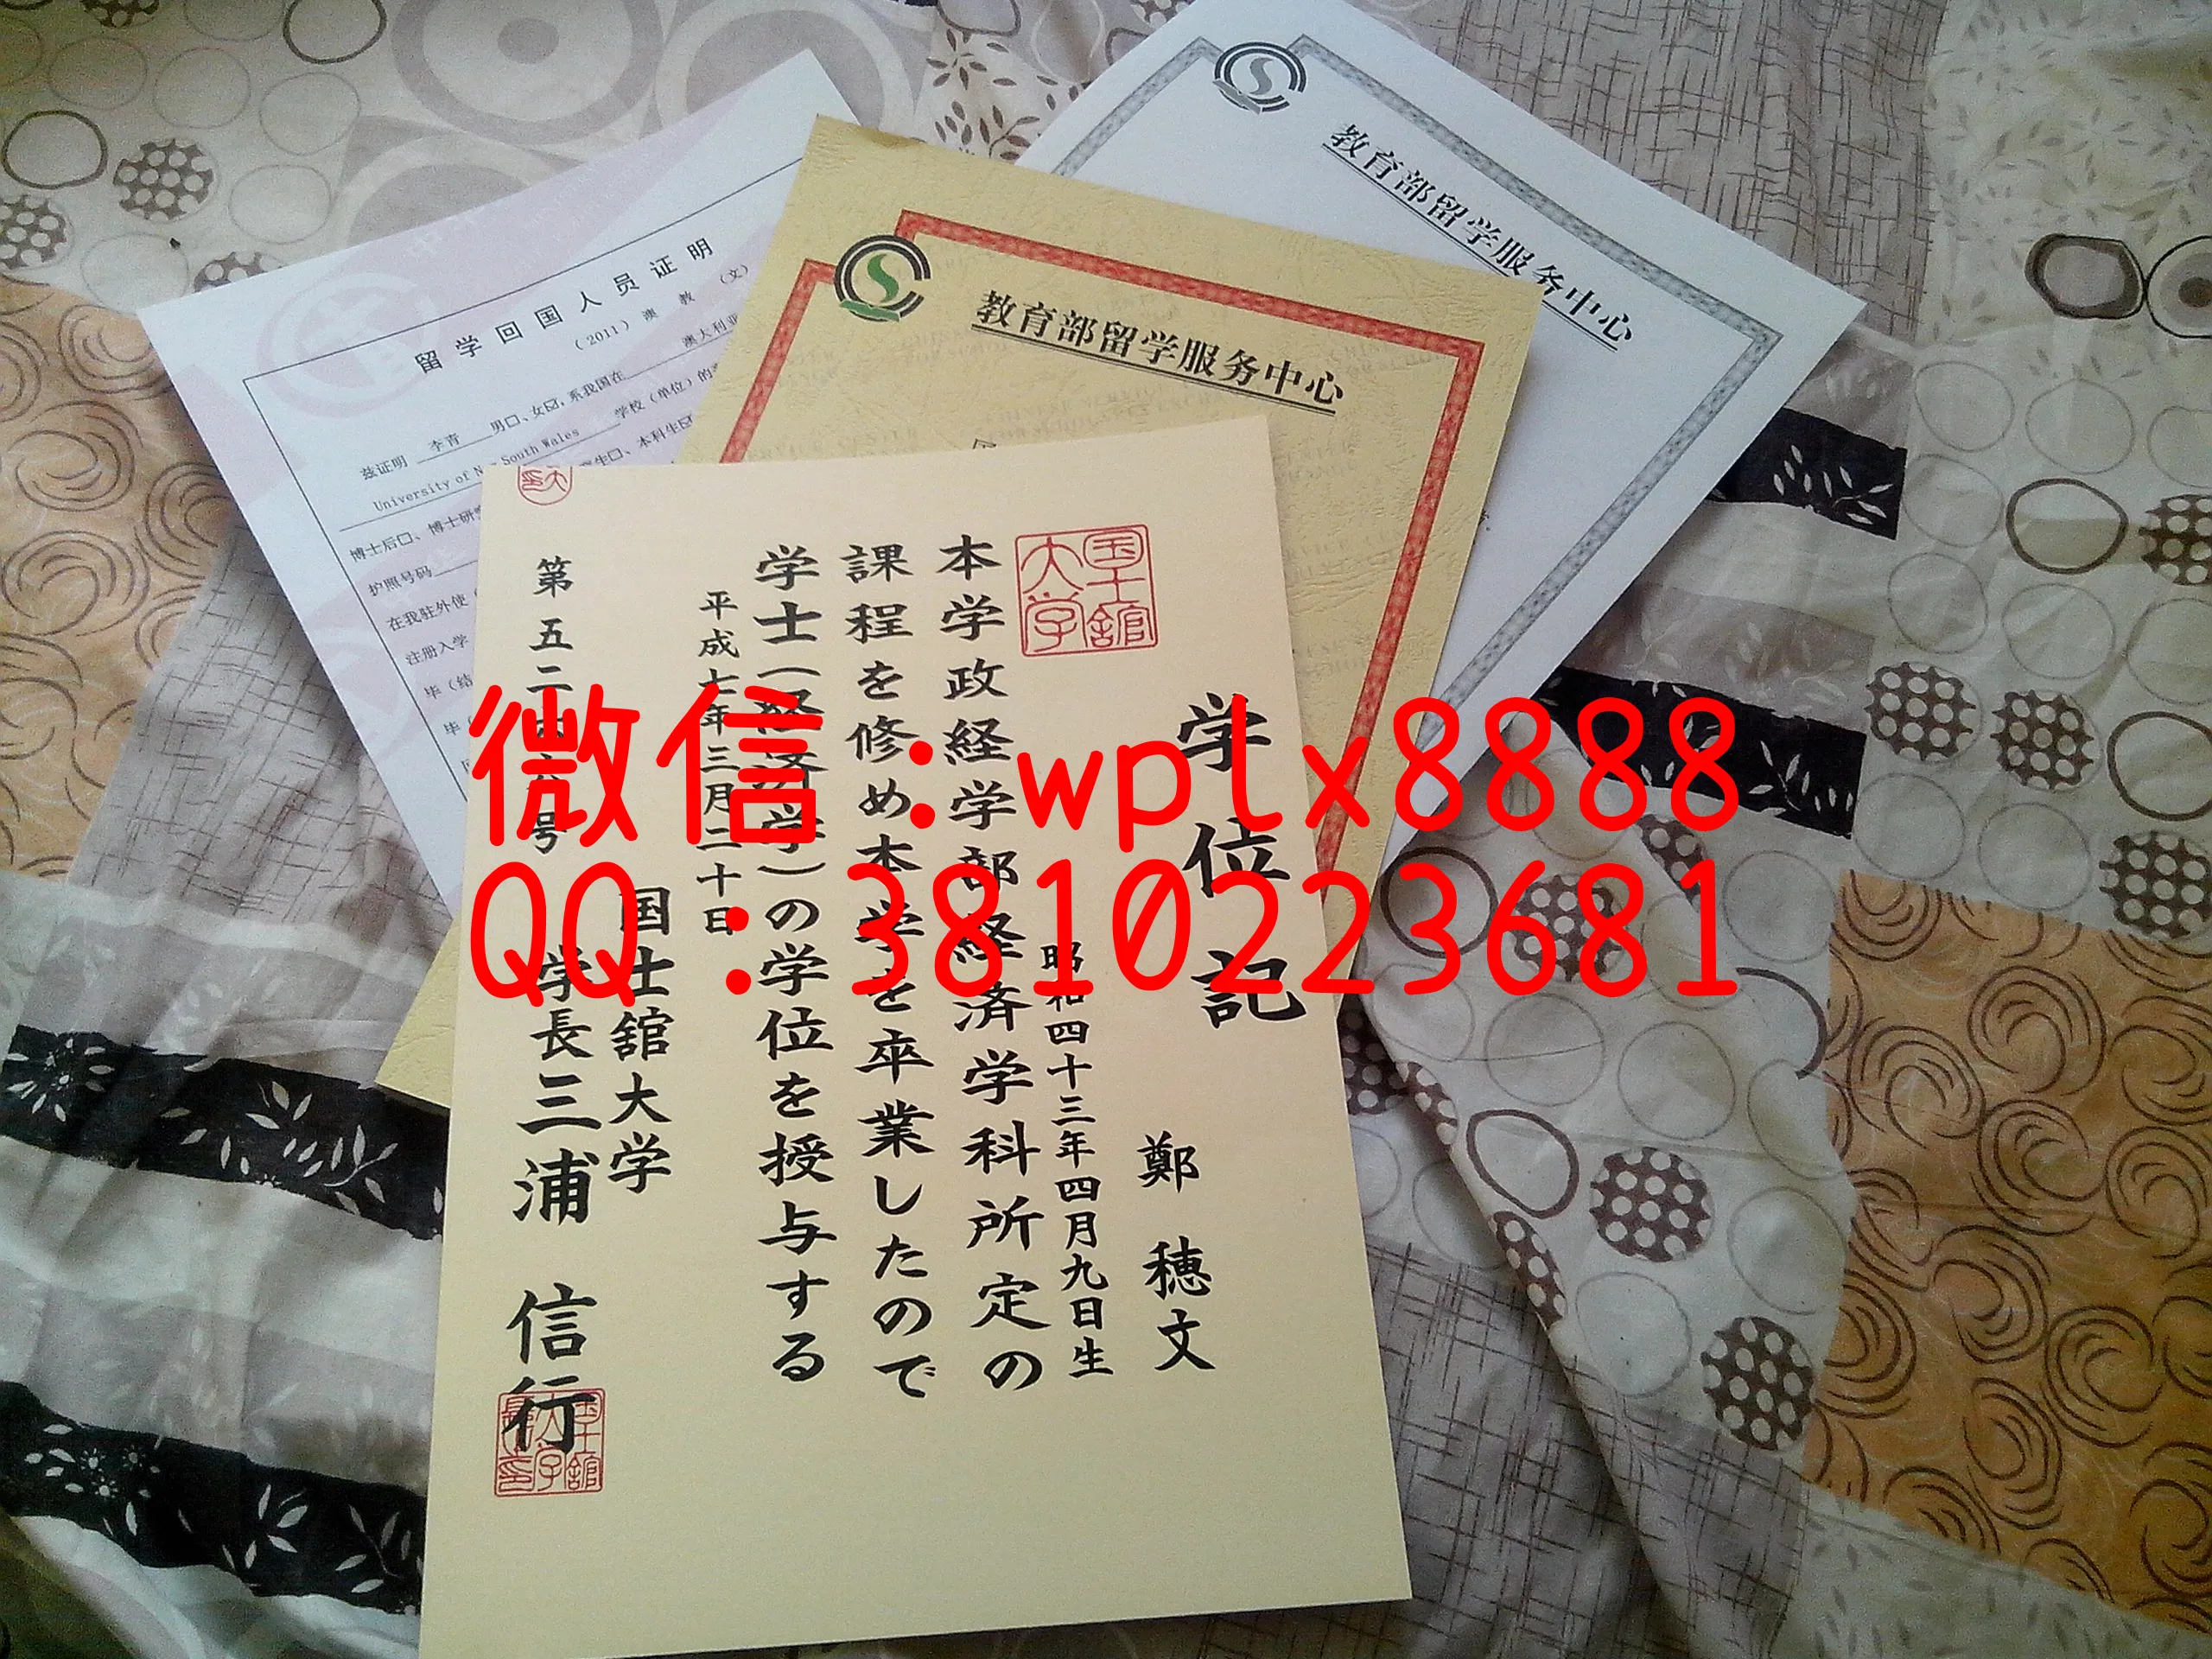 教育部留学服务中心
教育部留学服务中心
留学回国人员证明
（2011）澳 教 （文）
兹证明 李青 男□、女☑，系我国在 澳大利亚
University of N South Wales 学校（单位）的
生□、本科生☑
博士后□、博士研
护照号码
在我驻外使
注册入学
毕（结
毕（
国士舘大学
学位記
鄭 穂文
昭和四十三年四月九日生
本学政経学部経済学科所定の
課程を修め本学を卒業したので
学士（経済学）の学位を授与する
平成七年三月二十日
国士舘大学
学長 三浦 信行
第五二四六号
微信：wplx8888
QQ：3810223681